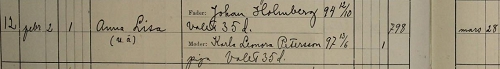 Fader: Johan Holmberg 94 12/10
12 febr 2 1 Anna Lisa Valet 35 d. 798 mars 28
(u. ä)
Moder: Karla Leonora Petersson 97 13/6 1
piga Valet 35 d.